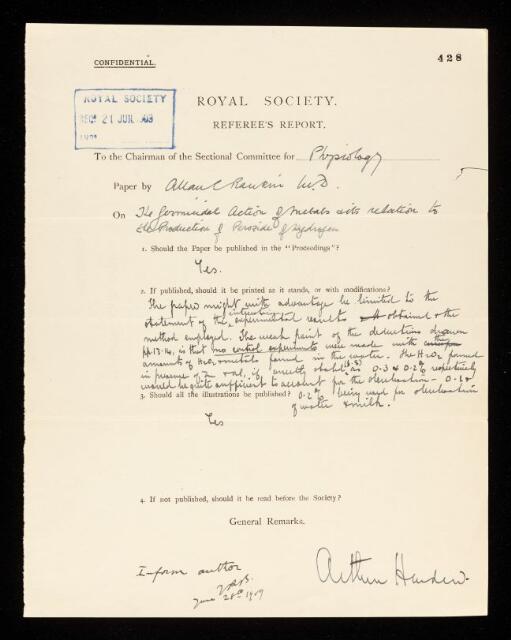 428
CONFIDENTIAL.
ROYAL SOCIETY
21 JUN. 
ROYAL SOCIETY.
REFEREE'S REPORT.
To the Chairman of the Sectional Committee for Physiology
Paper by Allan C Rankin M.D.
On The Germicidal Action of Metals & its relation to
the Production of Peroxide of Hydrogen
1. Should the Paper be published in the "Proceedings"?
Yes.
2. If published, should it be printed as it stands, or with modifications?
The paper might with advantage be limited to the
statement of the interesting experimental results obtained & the
method employed. The weak point of the deductions drawn
pp 13-4, is that no control experiments were made with
amounts of H2O2 found in the water. The H2O2 formed
in presence of Zn & Al, if correctly stated as 0.3 & 0.2% respectively
would be quite sufficient to account for the sterilisation - 0.1 &
3. Should all the illustrations be published? 0.2% being used for sterilisation
of water & milk.
Yes
4. If not published, should it be read before the Society?
General Remarks.
Inform author
June 28th 1909
Arthur Harden.